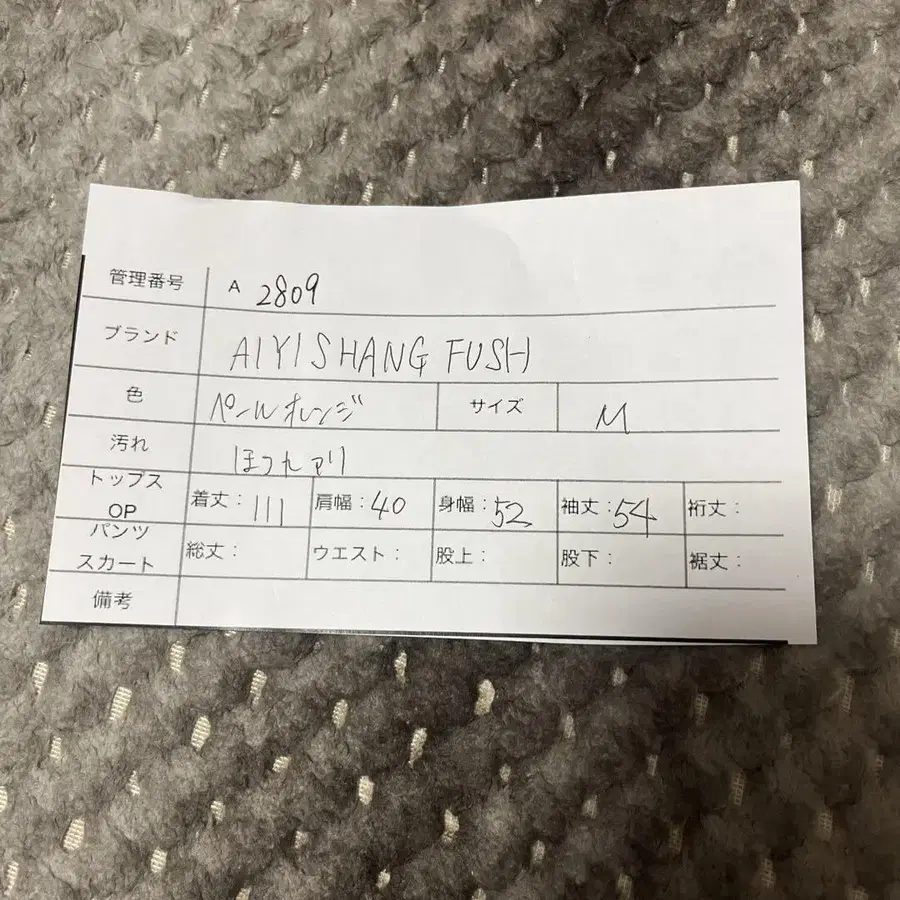 管理番号 A 2809
ブランド AIYISHANG FUSH
色 ペールオレンジ サイズ M
汚れ ほつれアリ
トップス OP 着丈：111 肩幅：40 身幅：52 袖丈：54 裄丈：
パンツ スカート 総丈： ウエスト： 股上： 股下： 裾丈：
備考